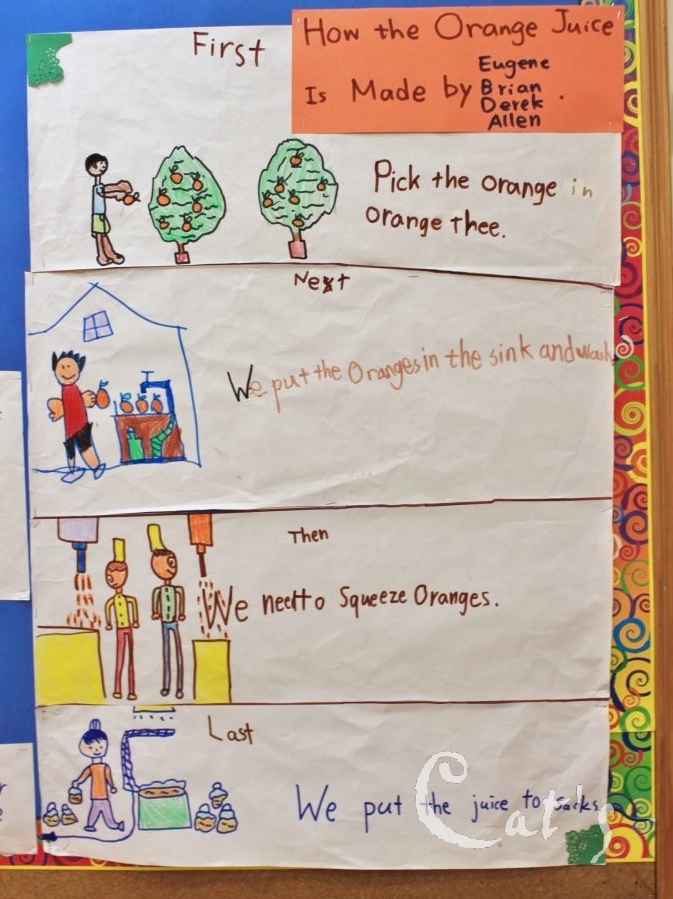 First
How the Orange Juice
Is Made by Eugene
Brian
Derek
Allen.
Pick the orange in
orange thee.
Next
We put the Oranges in the sink and wash
Then
We neet to Squeeze Oranges.
Last
We put the juice to sacks
Cat's